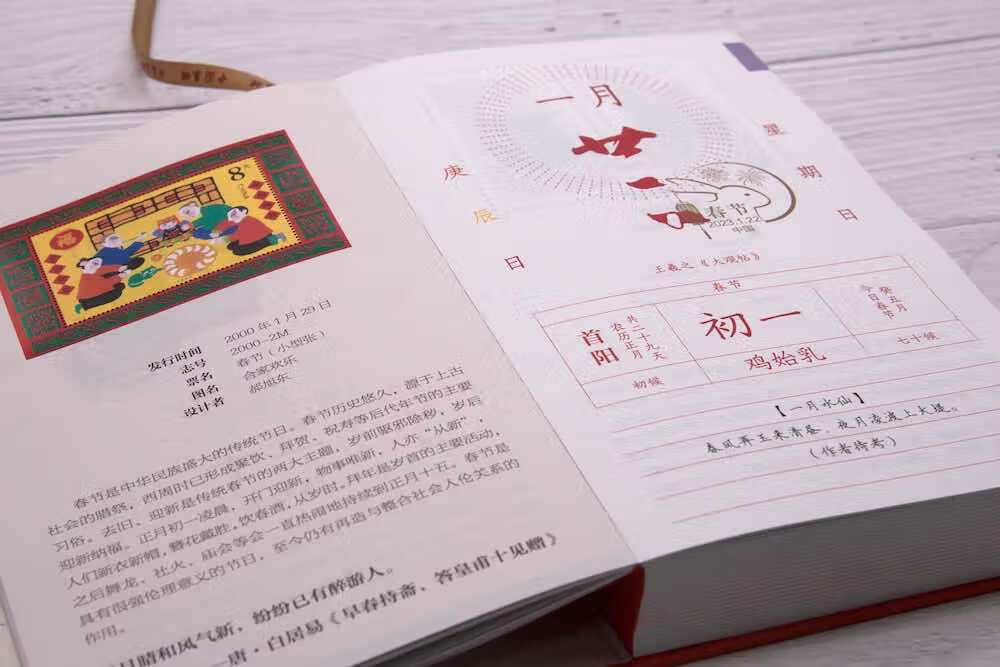 8元
CHINA
福
发行时间 2000年1月29日
志号 2000-2M
票名 春节（小型张）
图名 合家欢乐
设计者 郝旭东
春节是中华民族盛大的传统节日。春节历史悠久，源于上古
社会的腊祭，西周时已形成聚饮、拜贺、祝寿等后代年节的主要
习俗。去旧、迎新是传统春节的两大主题，岁前驱邪除秽，岁后
迎新纳福。正月初一凌晨，开门迎新，物事唯新，人亦“从新”，
人们新衣新帽，簪花戴胜，饮春酒，从岁时，拜年是岁首的主要活动，
之后舞龙、社火、庙会等会一直热闹地持续到正月十五。春节是
具有很强伦理意义的节日，至今仍有再造与整合社会人伦关系的
作用。
日晴和风气新，纷纷已有醉游人。
——唐·白居易《早春持斋，答皇甫十见赠》
一月
庚辰日
星期日
春节
2023.1.22
中国
王羲之《大观帖》
春节
首阳
农历正月
共二十九天
初一
癸丑月
今日春节
初候
鸡始乳
七十候
【一月水仙】
春风弄玉来清昼，夜月凌波上大堤。
（作者待考）